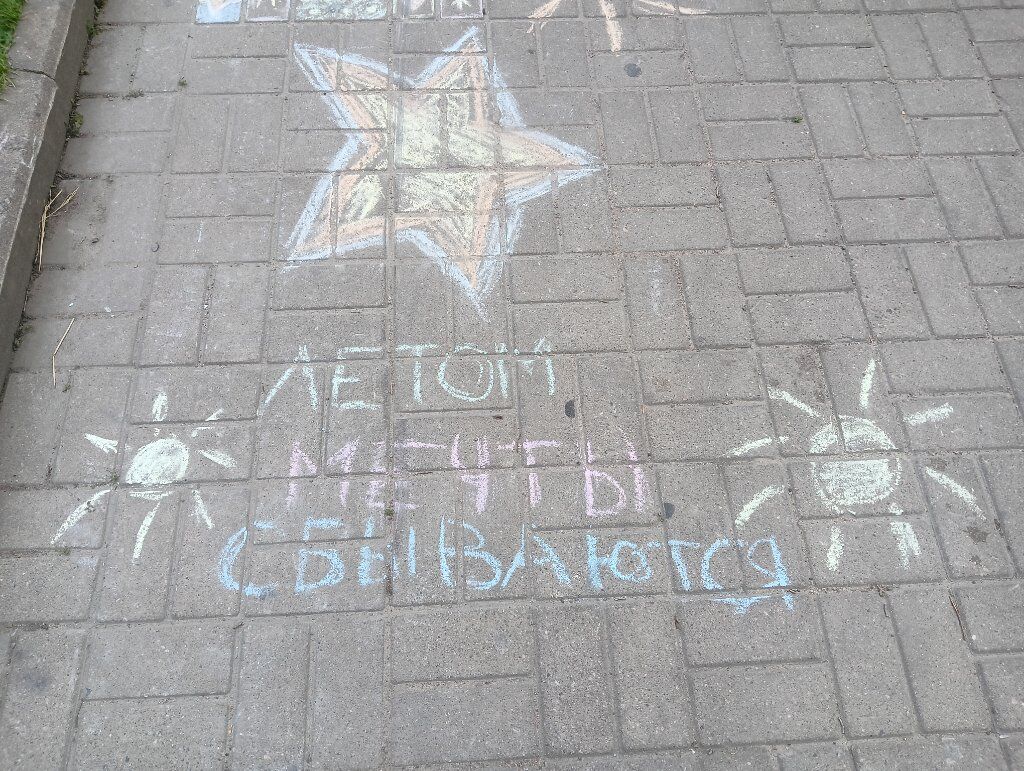 ЛЕТОМ
МЕЧТЫ
СБЫВАЮТСЯ